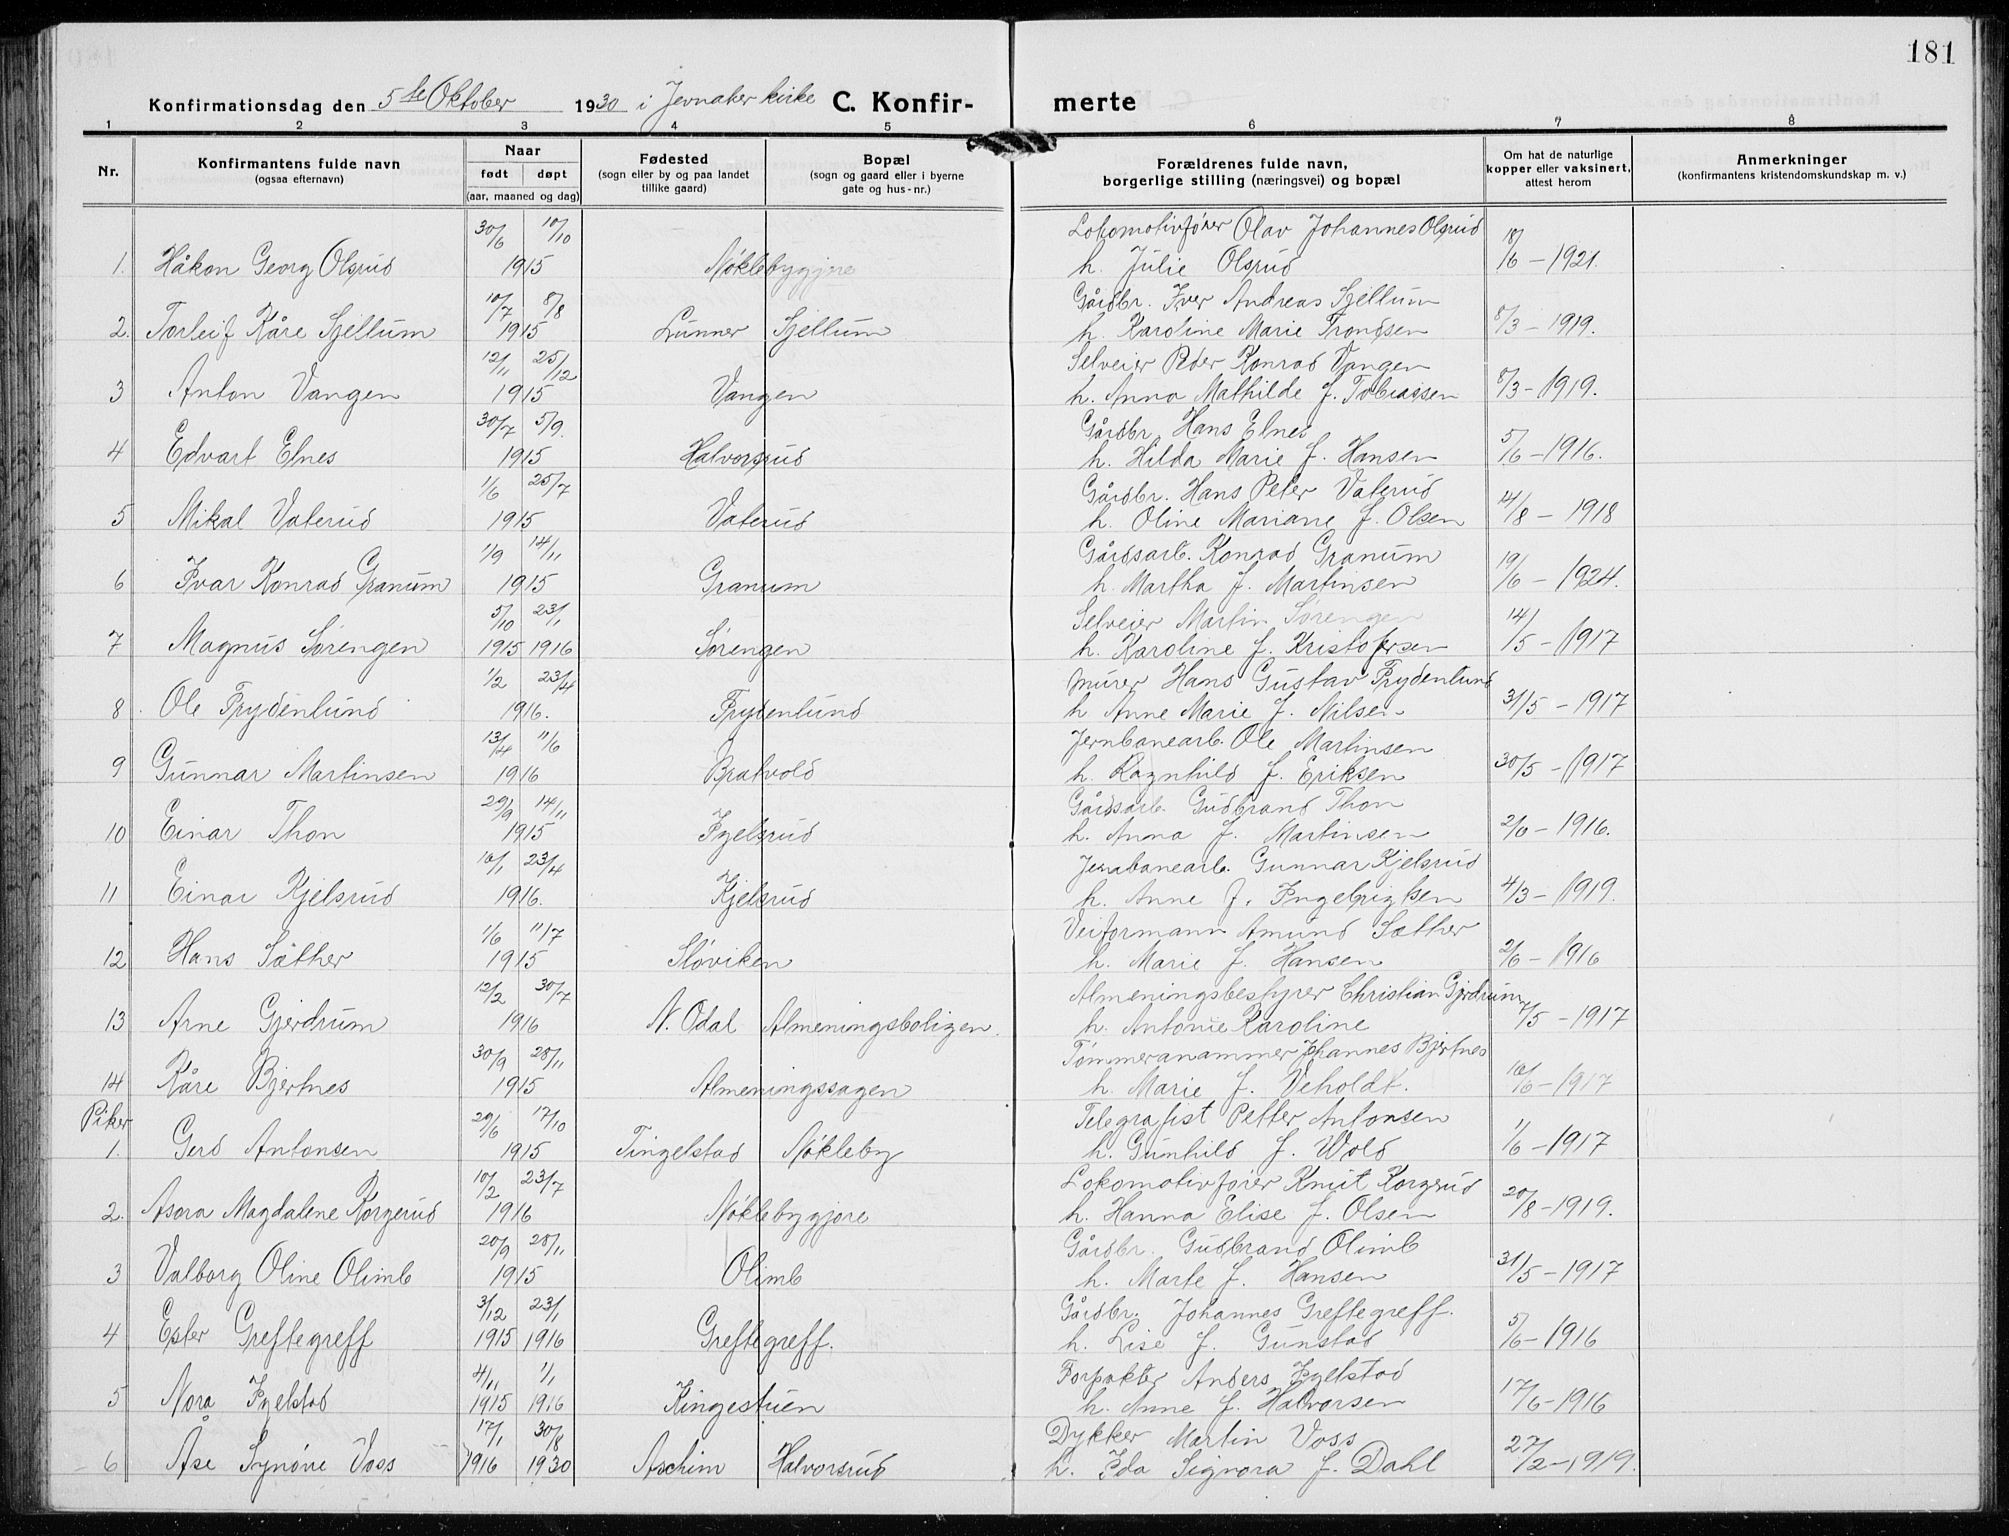 181
Konfirmationsdag den 5te Oktober 1930 i Jevnaker kirke C. Konfir- merte
1 2 3 4 5 6 7 8
Nr. Konfirmantens fulde navn (ogsaa efternavn) Naar født døpt (aar, maaned og dag) Fødested (sogn eller by og paa landet tillike gaard) Bopæl (sogn og gaard eller i byerne gate og hus-nr.) Forældrenes fulde navn, borgerlige stilling (næringsvei) og bopæl Om hat de naturlige kopper eller vaksinert, attest herom Anmerkninger (konfirmantens kristendomskundskap m. v.)
30/6 10/10 Lokomotivfører Olav Johannes Olsrud
1. Håkon Georg Olsrud 1915 Nøklebygjore h. Julie Olsrud 18/6 - 1921.
10/7 8/8 Gårdbr. Iver Andreas Sjellum
2. Torleif Kåre Sjellum 1915 Lunner Sjellum h. Karoline Marie Trondsen 8/3 - 1919.
12/11 25/12 Selveier Peder Konrad Vangen
3 Anton Vangen 1915 Vangen h. Anna Mathilde f. Tobiassen 8/3 - 1919.
30/7 5/9. Gårdbr. Hans Elnes
4 Edvart Elnes 1915 Halvorsrud h. Hilda Marie f. Hansen 5/6 - 1916.
1/6 25/7 Gårdbr. Hans Peter Vaterud
5 Mikal Vaterud 1915 Vaterud h. Oline Mariane f. Olsen 14/8 - 1918
1/9 14/11 Gårdsarb. Konrad Granum
6 Ivar Konrad Granum 1915 Granum h. Martha f. Martinsen 19/6 - 1924.
5/10 23/1 Selveier Martin Sørengen
7 Magnus Sørengen 1915 1916 Sørengen h. Karoline f. Kristofersen 14/5 - 1917
1/2 23/4 Murer Hans Gustav Frydenlund
8 Ole Frydenlund 1916. Frydenlund h Anne Marie f. Nilsen 31/5 - 1917
13/4 11/6 Jernbanearb. Ole Martinsen
9 Gunnar Martinsen 1916 Bratvold h. Ragnhild f. Eriksen 30/5 - 1917
29/9 14/11 Gårdsarb. Gudbrand Thon
10 Einar Thon 1915 Igelsrud h. Anna f. Martinsen 2/6 - 1916.
10/1 23/4 Jernbanearb. Gunnar Kjelsrud
11 Einar Kjelsrud 1916. Kjelsrud h. Anne f. Ingebrigtsen 4/3 - 1919.
1/6 11/7 Veiformann Amund Sæther
12 Hans Sæther 1915 Sløviken h. Marie f. Hansen 2/6 - 1916
12/2 30/7 Almeningsbestyrer Christian Gjerdrum
13 Arne Gjerdrum 1916 N. Odal Almeningsboligen. h. Antonie Karoline 7/5 - 1917
30/9 28/11 Tømmeranammer Johannes Bjertnes
14 Kåre Bjertnes 1915 Almeningssagen h. Marie f. Veholdt. 10/6 - 1917
Piker 29/6 17/10 Telegrafist Petter Antonsen
1. Gerd Antonsen 1915 Tingelstad Nøkleby h. Gunhild f. Wold 1/6 - 1917
10/2 23/7 Lokomotivfører Knut Korgerud
2. Asora Magdalene Korgerud 1916 Nøklebygjore h. Hanna Elise f. Olsen 20/8 - 1919.
20/9 28/11 Gårdbr. Gudbrand Olimb
3 Valborg Oline Olimb 1915 Olimb h. Marte f. Hansen 31/5 - 1917
3/12 23/1 Gårdbr. Johannes Greftegreff.
4 Ester Greftegreff 1915 1916 Greftegreff. h. Lise f. Gunstad 5/6 - 1916
4/11 1/1 Forpakter Anders Igelstad
5 Nora Igelstad 1915 1916 Kingestuen h. Anne f. Halvorsen 17/6 - 1916
17/1 30/8 Dykker Martin Voss
6 Åse Synøve Voss 1916 1930 Aschim Halvorsrud h. Ida Signora f. Dahl 27/2 - 1919.